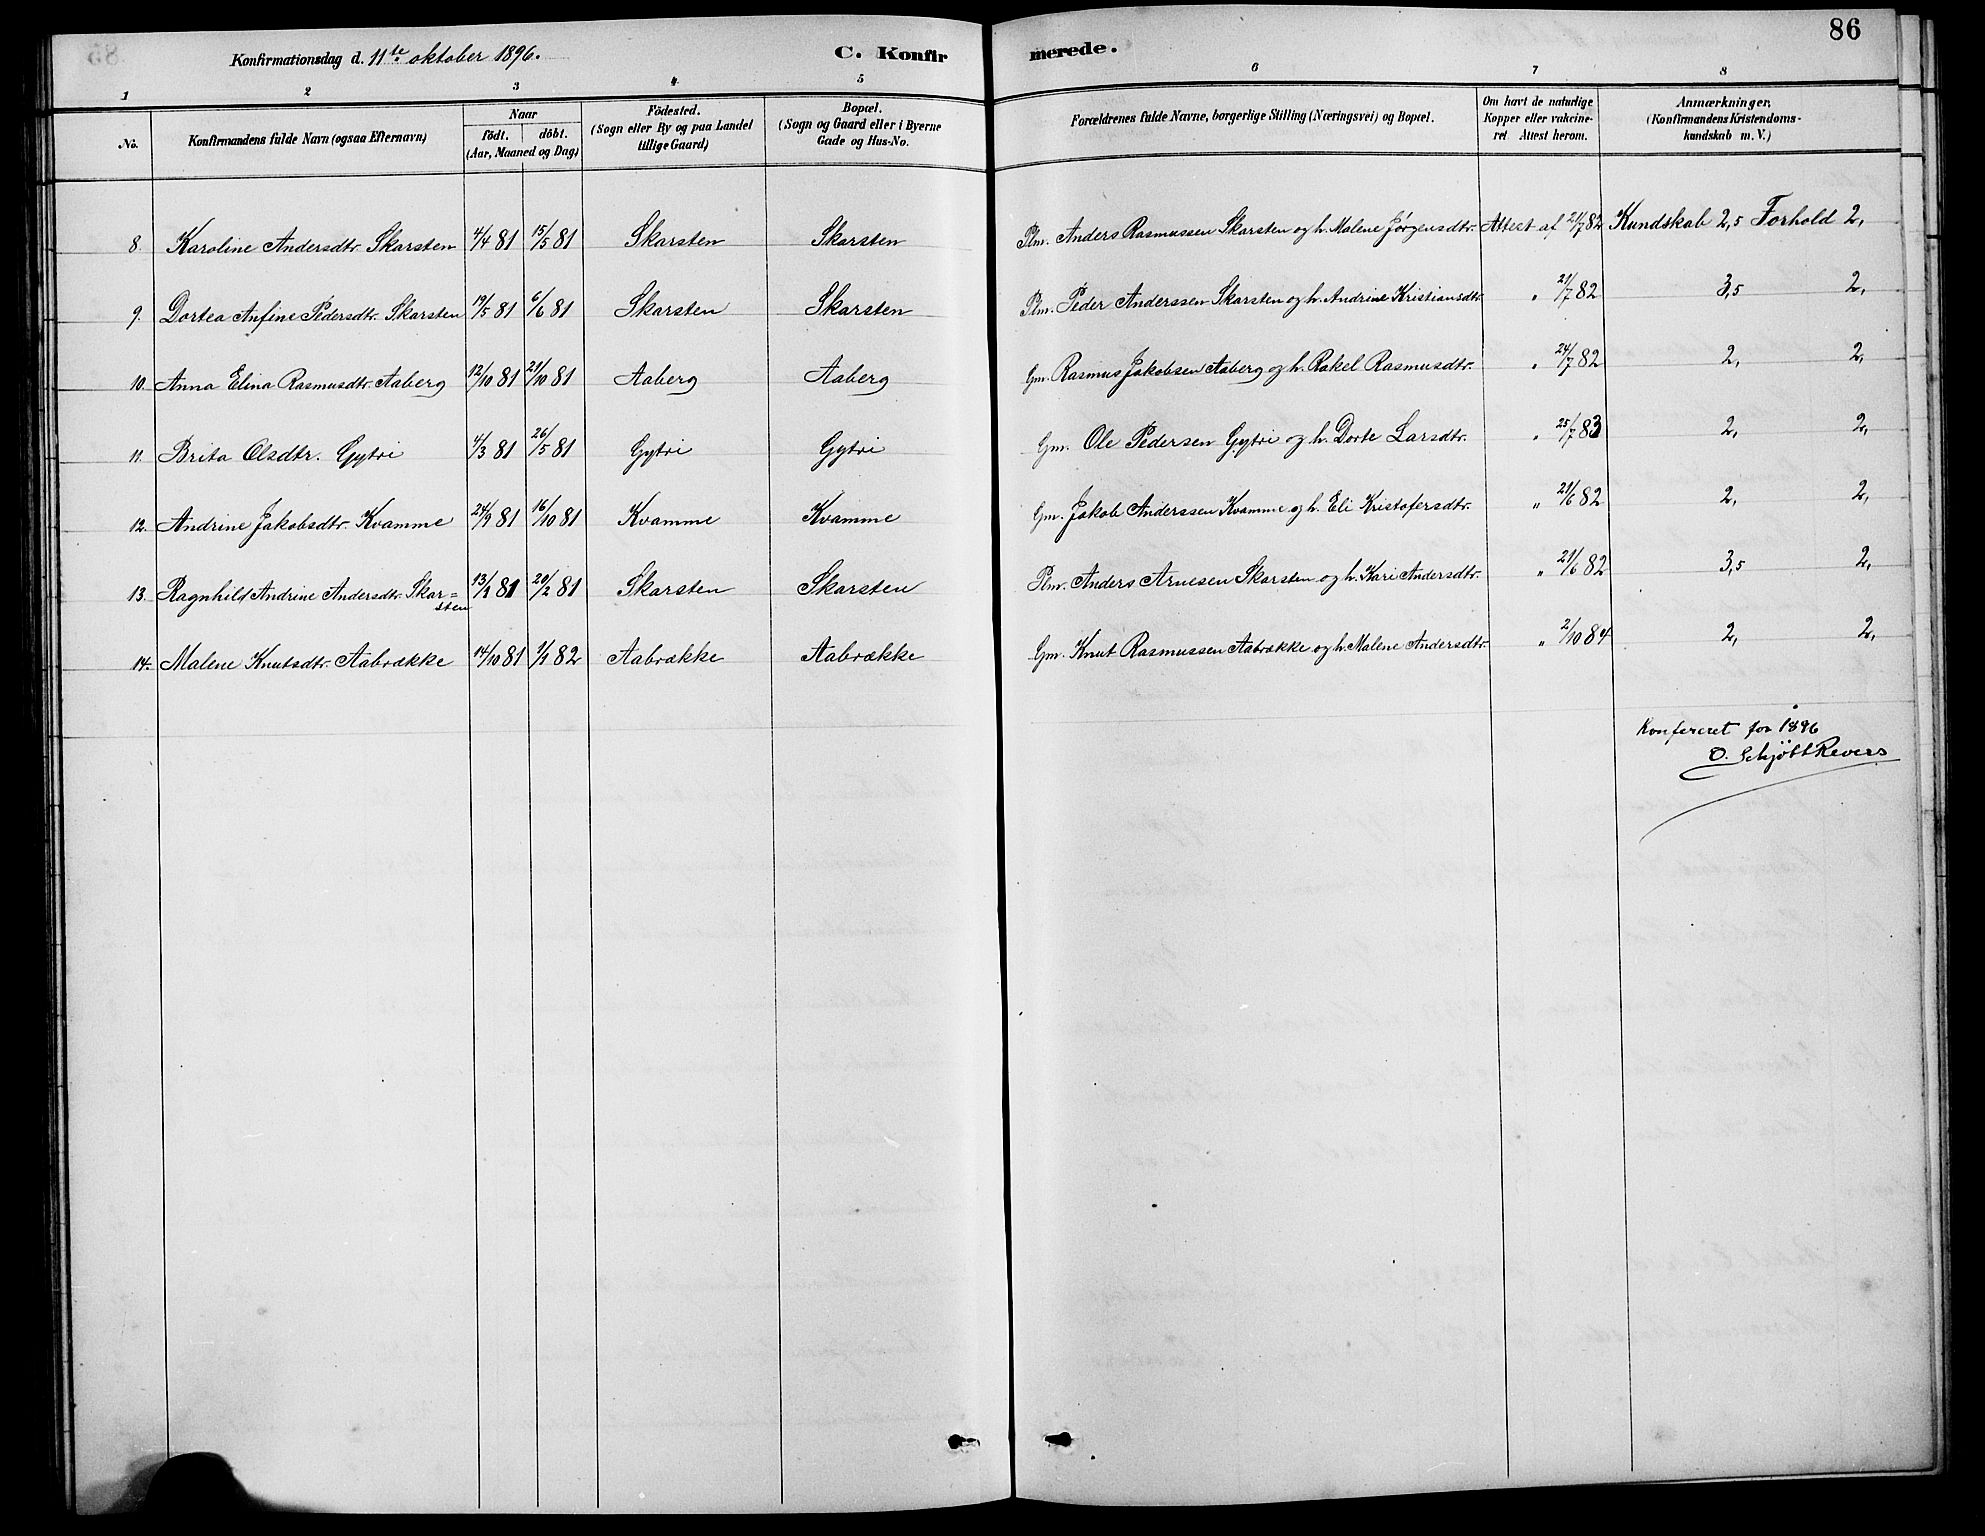 86
Konfirmationsdag d. 11te oktober 1896. C. Konfirmerede.
1 2 3 4 5 6 7 8
No. Konfirmandens fulde Navn (ogsaa Efternavn) Naar födt. döbt. (Aar, Maaned og Dag) Födested. (Sogn eller By og paa Landet tillige Gaard) Bopæl. (Sogn og Gaard eller i Byerne Gade og Hus-No. Forældrenes fulde Navne, borgerlige Stilling (Næringsvei) og Bopæl. Om havt de naturlige Kopper eller vakcineret Attest herom. Anmærkninger. (Konfirmandens Kristendomskundskab m. V.)
8. Karoline Andersdtr. Skarsten 4/4 81 15/5 81 Skarsten Skarsten Plm. Anders Rasmussen Skarsten og h. Malene Jörgensdtr. Attest af 21/7 82 Kundskab 2,5 Forhold 2,
9. Dortea Anfine Pedersdtr. Skarsten 19/5 81 6/6 81 Skarsten Skarsten Plm. Peder Anderssen Skarsten og h. Andrine Kristiansdtr. " 21/7 82 3,5 2,
10. Anna Elina Rasmusdtr. Aaberg 12/10 81 21/10 81 Aaberg Aaberg Gm. Rasmus Jakobsen Aaberg og h. Rakel Rasmusdtr. " 24/7 82 2, 2,
11. Brita Olsdtr. Gytri 4/3 81 26/5 81 Gytri Gytri Gm. Ole Pedersen Gytri og h. Dorte Larsdtr. " 25/7 83 2, 2,
12. Andrine Jakobsdtr. Kvamme 24/9 81 16/10 81 Kvamme Kvamme Gm. Jakob Anderssen Kvamme og h. Eli Kristofersdtr. " 21/6 82 2, 2,
13. Ragnhild Andrine Andersdtr. Skar=
sten 81 20/2 81 Skarsten Skarsten Plm. Anders Arnesen Skarsten og h. Kari Andersdtr. " 21/6 82 3,5 2,
14. Malene Knutsdtr. Aabrække 14/10 81 1/1 82 Aabrække Aabrække Gm. Knut Rasmussen Aabrække og h. Malene Andersdtr. " 2/10 84 2, 2,
Konfereret for 1896
O. Schjött Revers